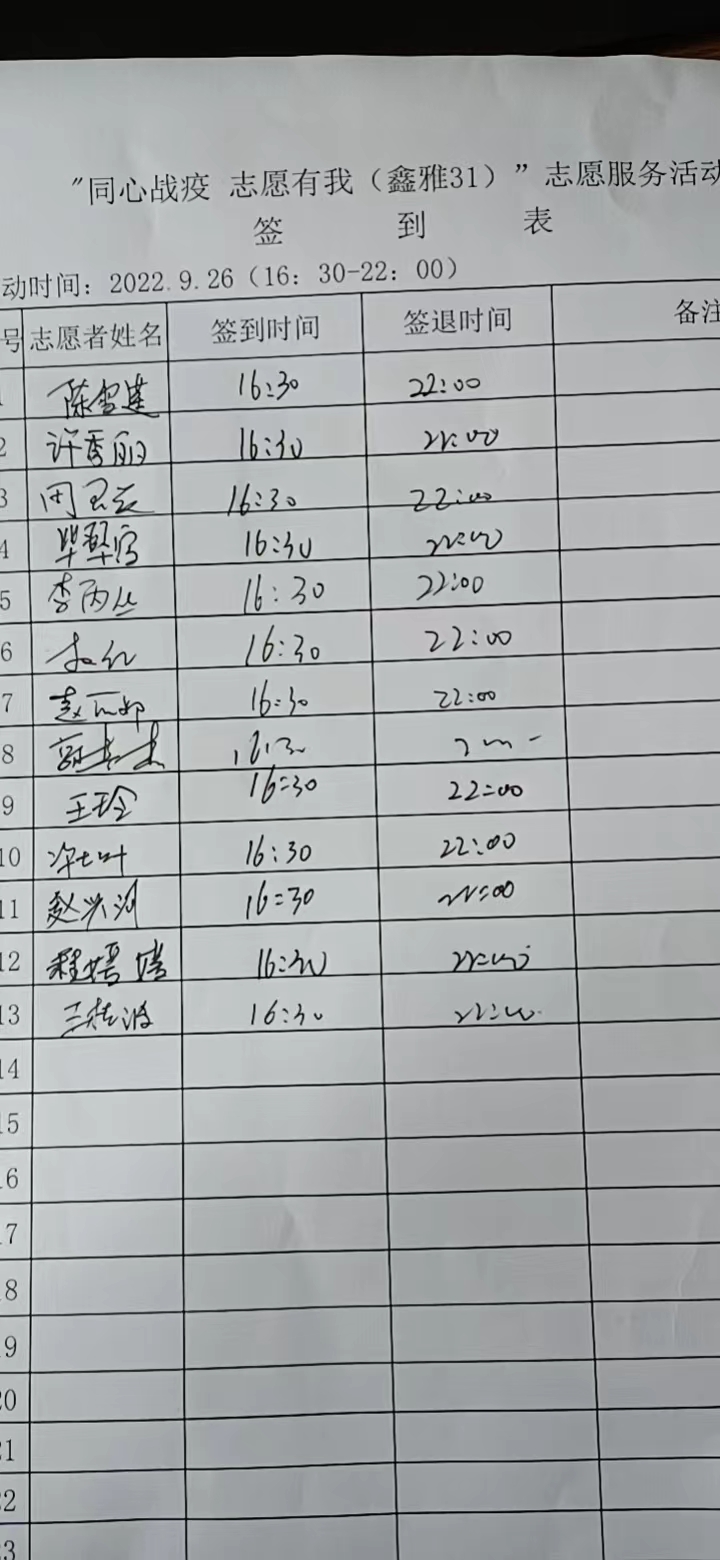 "同心战疫 志愿有我（鑫雅31）"志愿服务活动
签 到 表
动时间：2022.9.26（16：30-22：00）
号 志愿者姓名 签到时间 签退时间 备注
1 陈雪莲 16:30 22:00
2 许秀丽 16:30 22:00
3 周玉云 16:30 22:00
4 毕翠 16:30 22:00
5 李丙丛 16:30 22:00
6 16:30 22:00
7 赵 16:30 22:00
8
9 王玲 16:30 22:00
10 叶 16:30 22:00
11 赵兴河 16:30 22:00
12 程 16:30 22:00
13 波 16:30 22:00
14
15
16
17
18
19
20
21
22
23